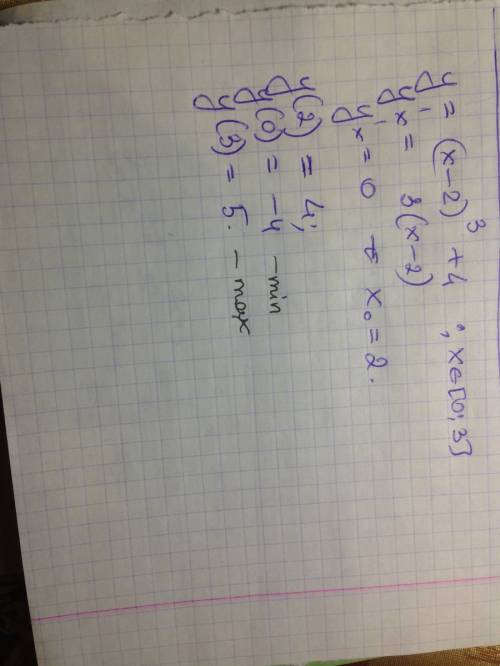 y = (x-2)³ + 4 ; x∈[0; 3]
y'ₓ = 3(x-2)
y'ₓ = 0 x₀ = 2.
y(2) = 4;
y(0) = -4 - min
y(3) = 5. - max